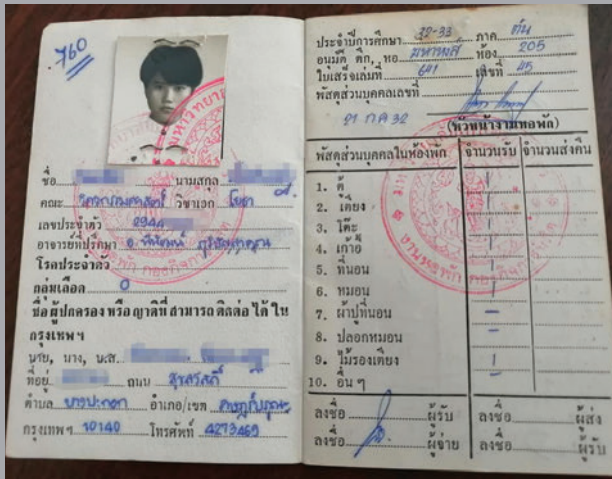 760
ชื่อ นามสกุล
คณะ วิศวกรรมศาสตร์ วิชาเอก โยธา
เลขประจำตัว 2944
อาจารย์ที่ปรึกษา อ.
โรคประจำตัว
กลุ่มเลือด O
ชื่อผู้ปกครอง หรือ ญาติที่สามารถติดต่อได้ใน
กรุงเทพฯ
นาย, นาง, น.ส.
ที่อยู่ ถนน สุขสวัสดิ์
ตำบล บางปะกอก อำเภอ/เขต ราษฎร์บูรณะ
กรุงเทพฯ 10140 โทรศัพท์ 4273469
ประจำปีการศึกษา 32-33 ภาค ต้น
อนุมัติ ตึก, หอ มหาหงส์ ห้อง 205
ใบเสร็จเล่มที่ 641 เลขที่ 45
พัสดุส่วนบุคคลเลขที่
21 กค 32 (หัวหน้างานหอพัก)
พัสดุส่วนบุคคลในห้องพัก จำนวนรับ จำนวนส่งคืน
1. ตู้ /
2. เตียง /
3. โต๊ะ /
4. เก้าอี้ /
5. ที่นอน /
6. หมอน /
7. ผ้าปูที่นอน -
8. ปลอกหมอน -
9. ไม้รองเตียง /
10. อื่น ๆ -
ลงชื่อ ผู้รับ ลงชื่อ ผู้ส่ง
ลงชื่อ ผู้จ่าย ลงชื่อ ผู้รับ